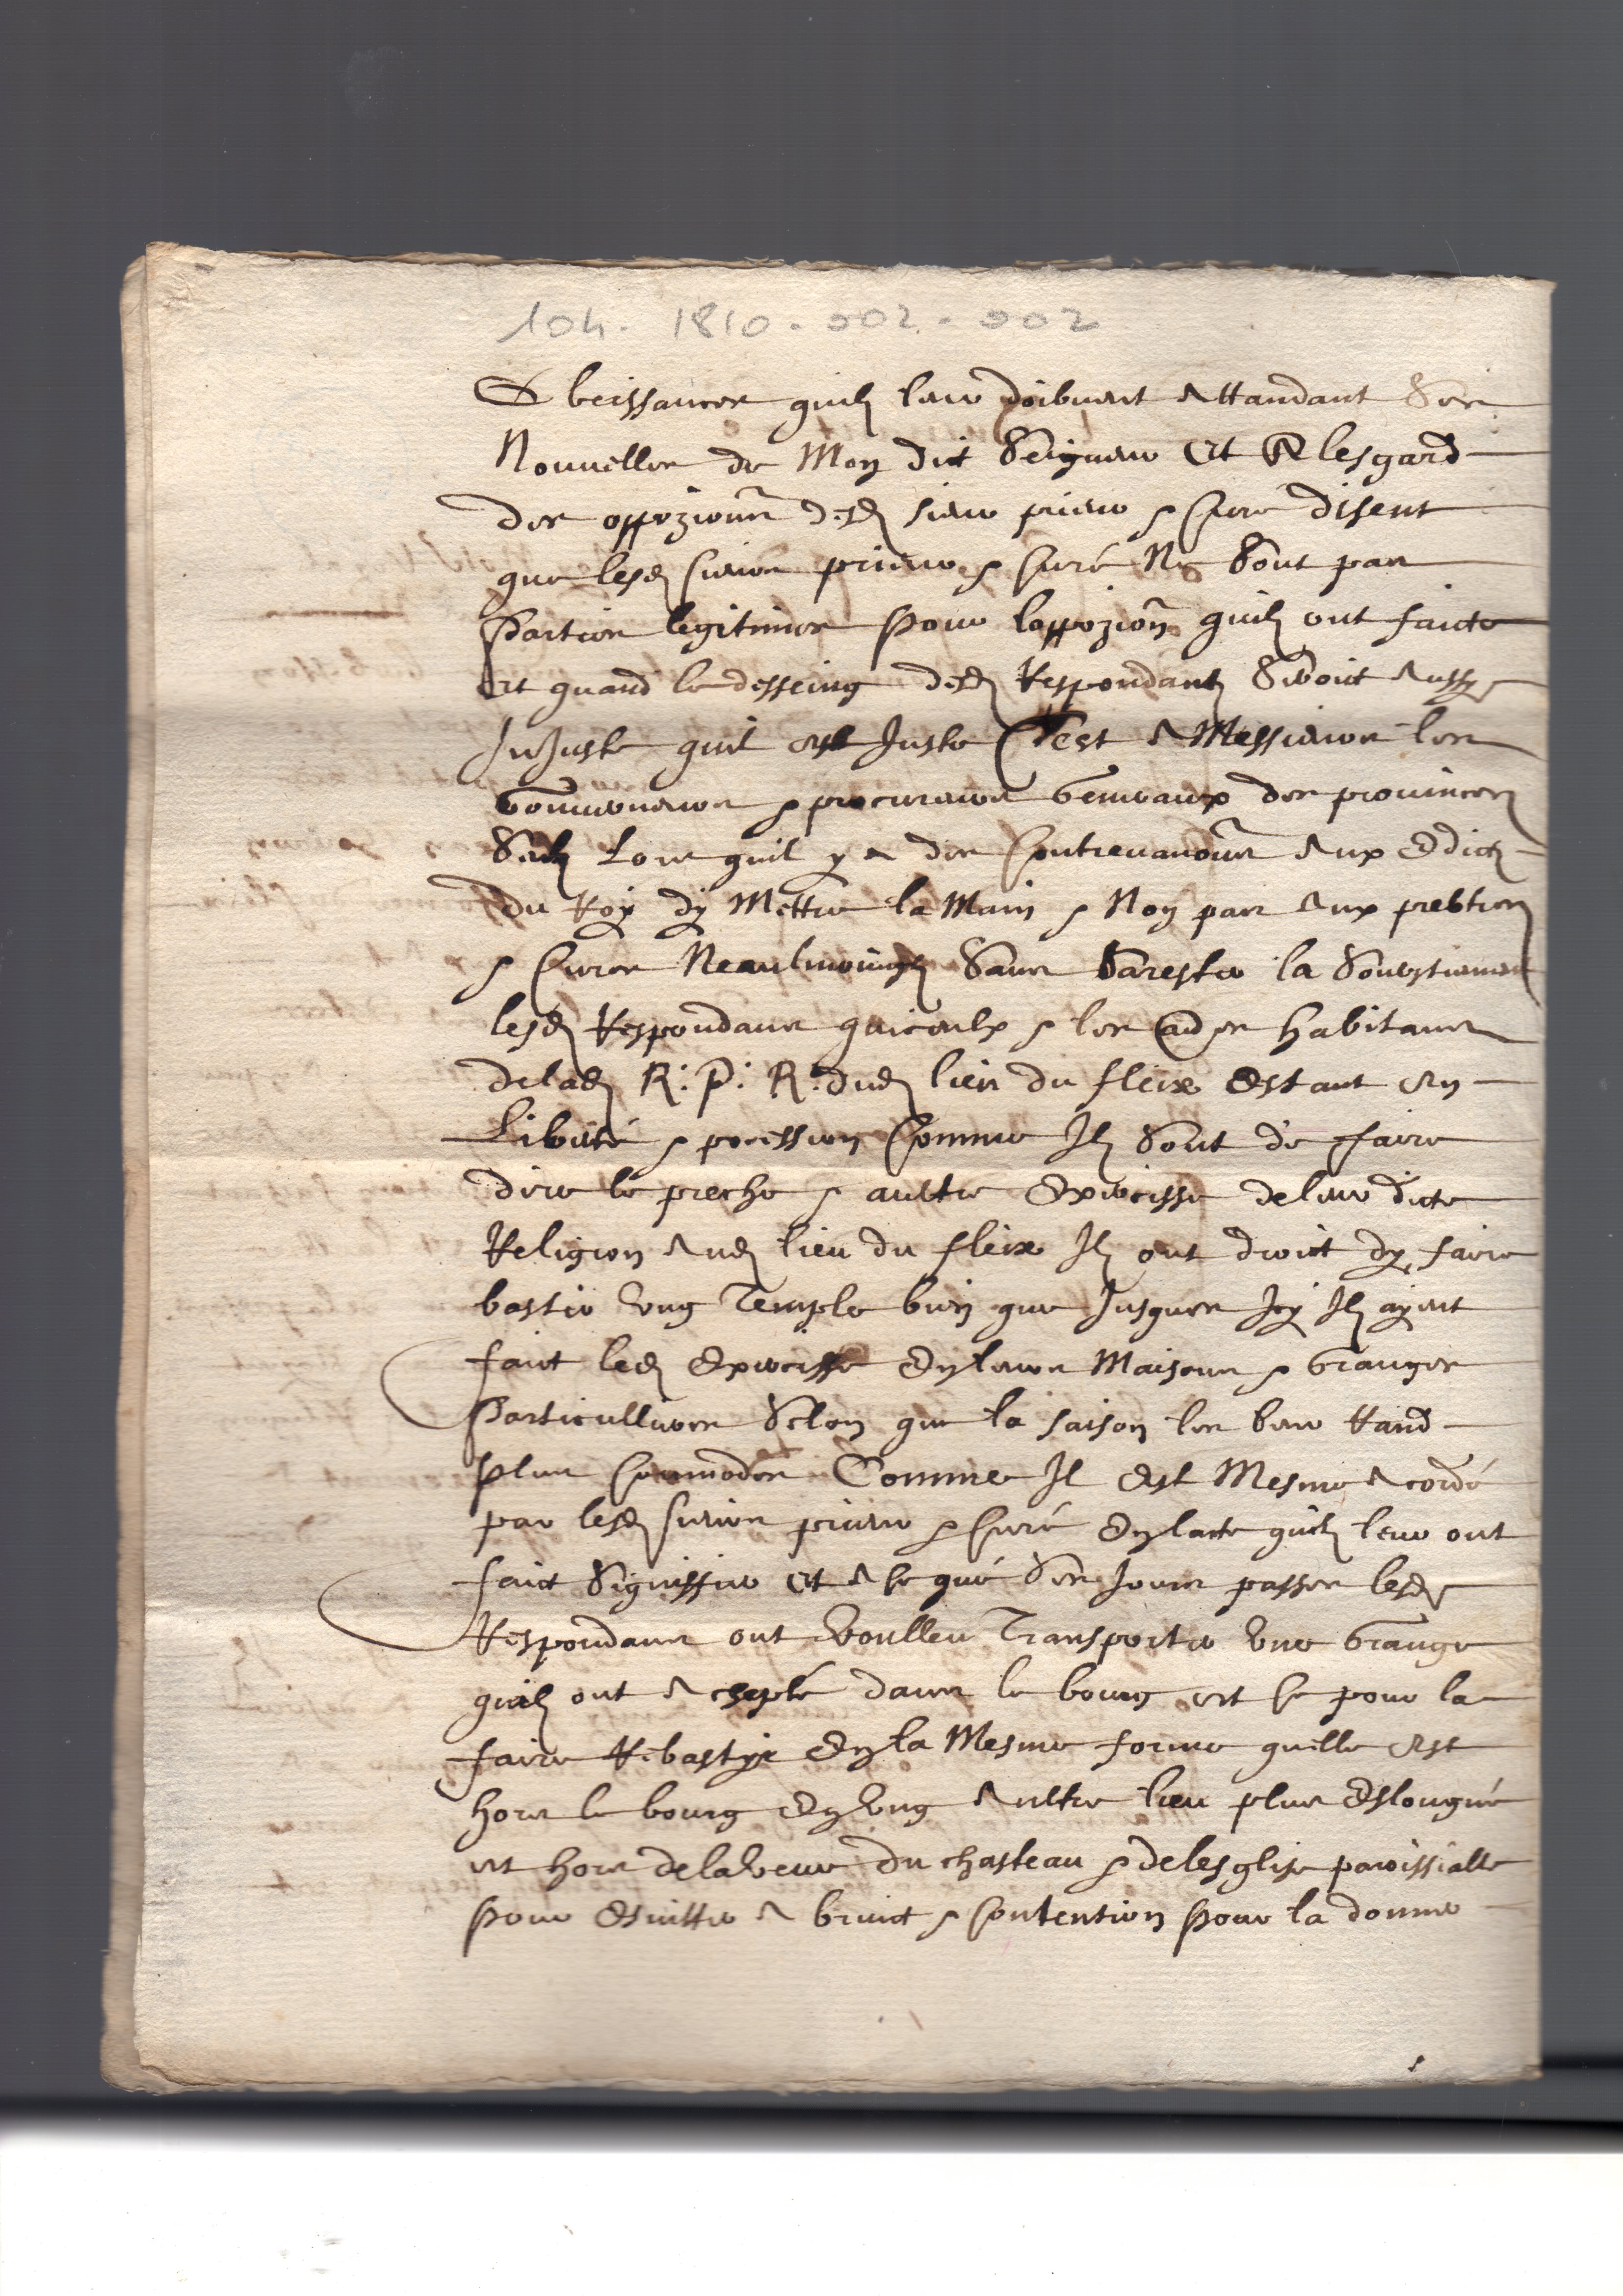 104. 1810. 002. 002
Obeissances quilz leur doibvent Attandant Ses
Nouvelles de Mon dict Seigneur Et A lesgard
des oppozions desdz sieur prieur & Curé disent
que lesdz sieurs prieur & Curé Ne Sont pas
Parties legitimes Pour loppozion quilz ont faicte
Et quand le desseing desdz Respondantz Seroict Aussy
InJuste quil est Juste Cest A Messieurs les
Gouverneurs & procureurs Generaux des provinces
Seulz Lors quil y a des Contrevanõns Aux Edictz
du Roy dy Mettre la Main & Non pas Aux prebtres
& Cures Neaulmoingz Sans Sarester la Soubstienent
lesdz Respondans quiceulx & les habitans
deladz R: P: R: dudz lieu du fleix Estant En
Liberté & pocession Comme Ilz Sont de faire
dire le preche & aultre Exercisse de leur dicte
Religion Audz lieu du fleix Ilz ont droict dy faire
bastir Ung Temple bien que Jusques Icy Ilz ayent
faict ledz Exercisse En leurs Maisons & Granges
Particullieres Selon que la saison les leur Rand
Plus Commodes Comme Il Est Mesme Acordé
par lesdz sieurs prieur & Curé En lacte quilz leur ont
faict Signiffier Et A Ce que Ses Jours passes lesdz
Respondans ont Voulleu Transporter Une Grange
quilz ont Achepté dans le bourg Et Ce pour la
faire Rebastyr En la Mesme forme quelle Est
hors le bourg En Ung Aultre lieu plus Eslougné
Et hors de la Veue du chasteau & de lesglise paroissialle
Pour Esvitter A bruict & Contention Pour la donner